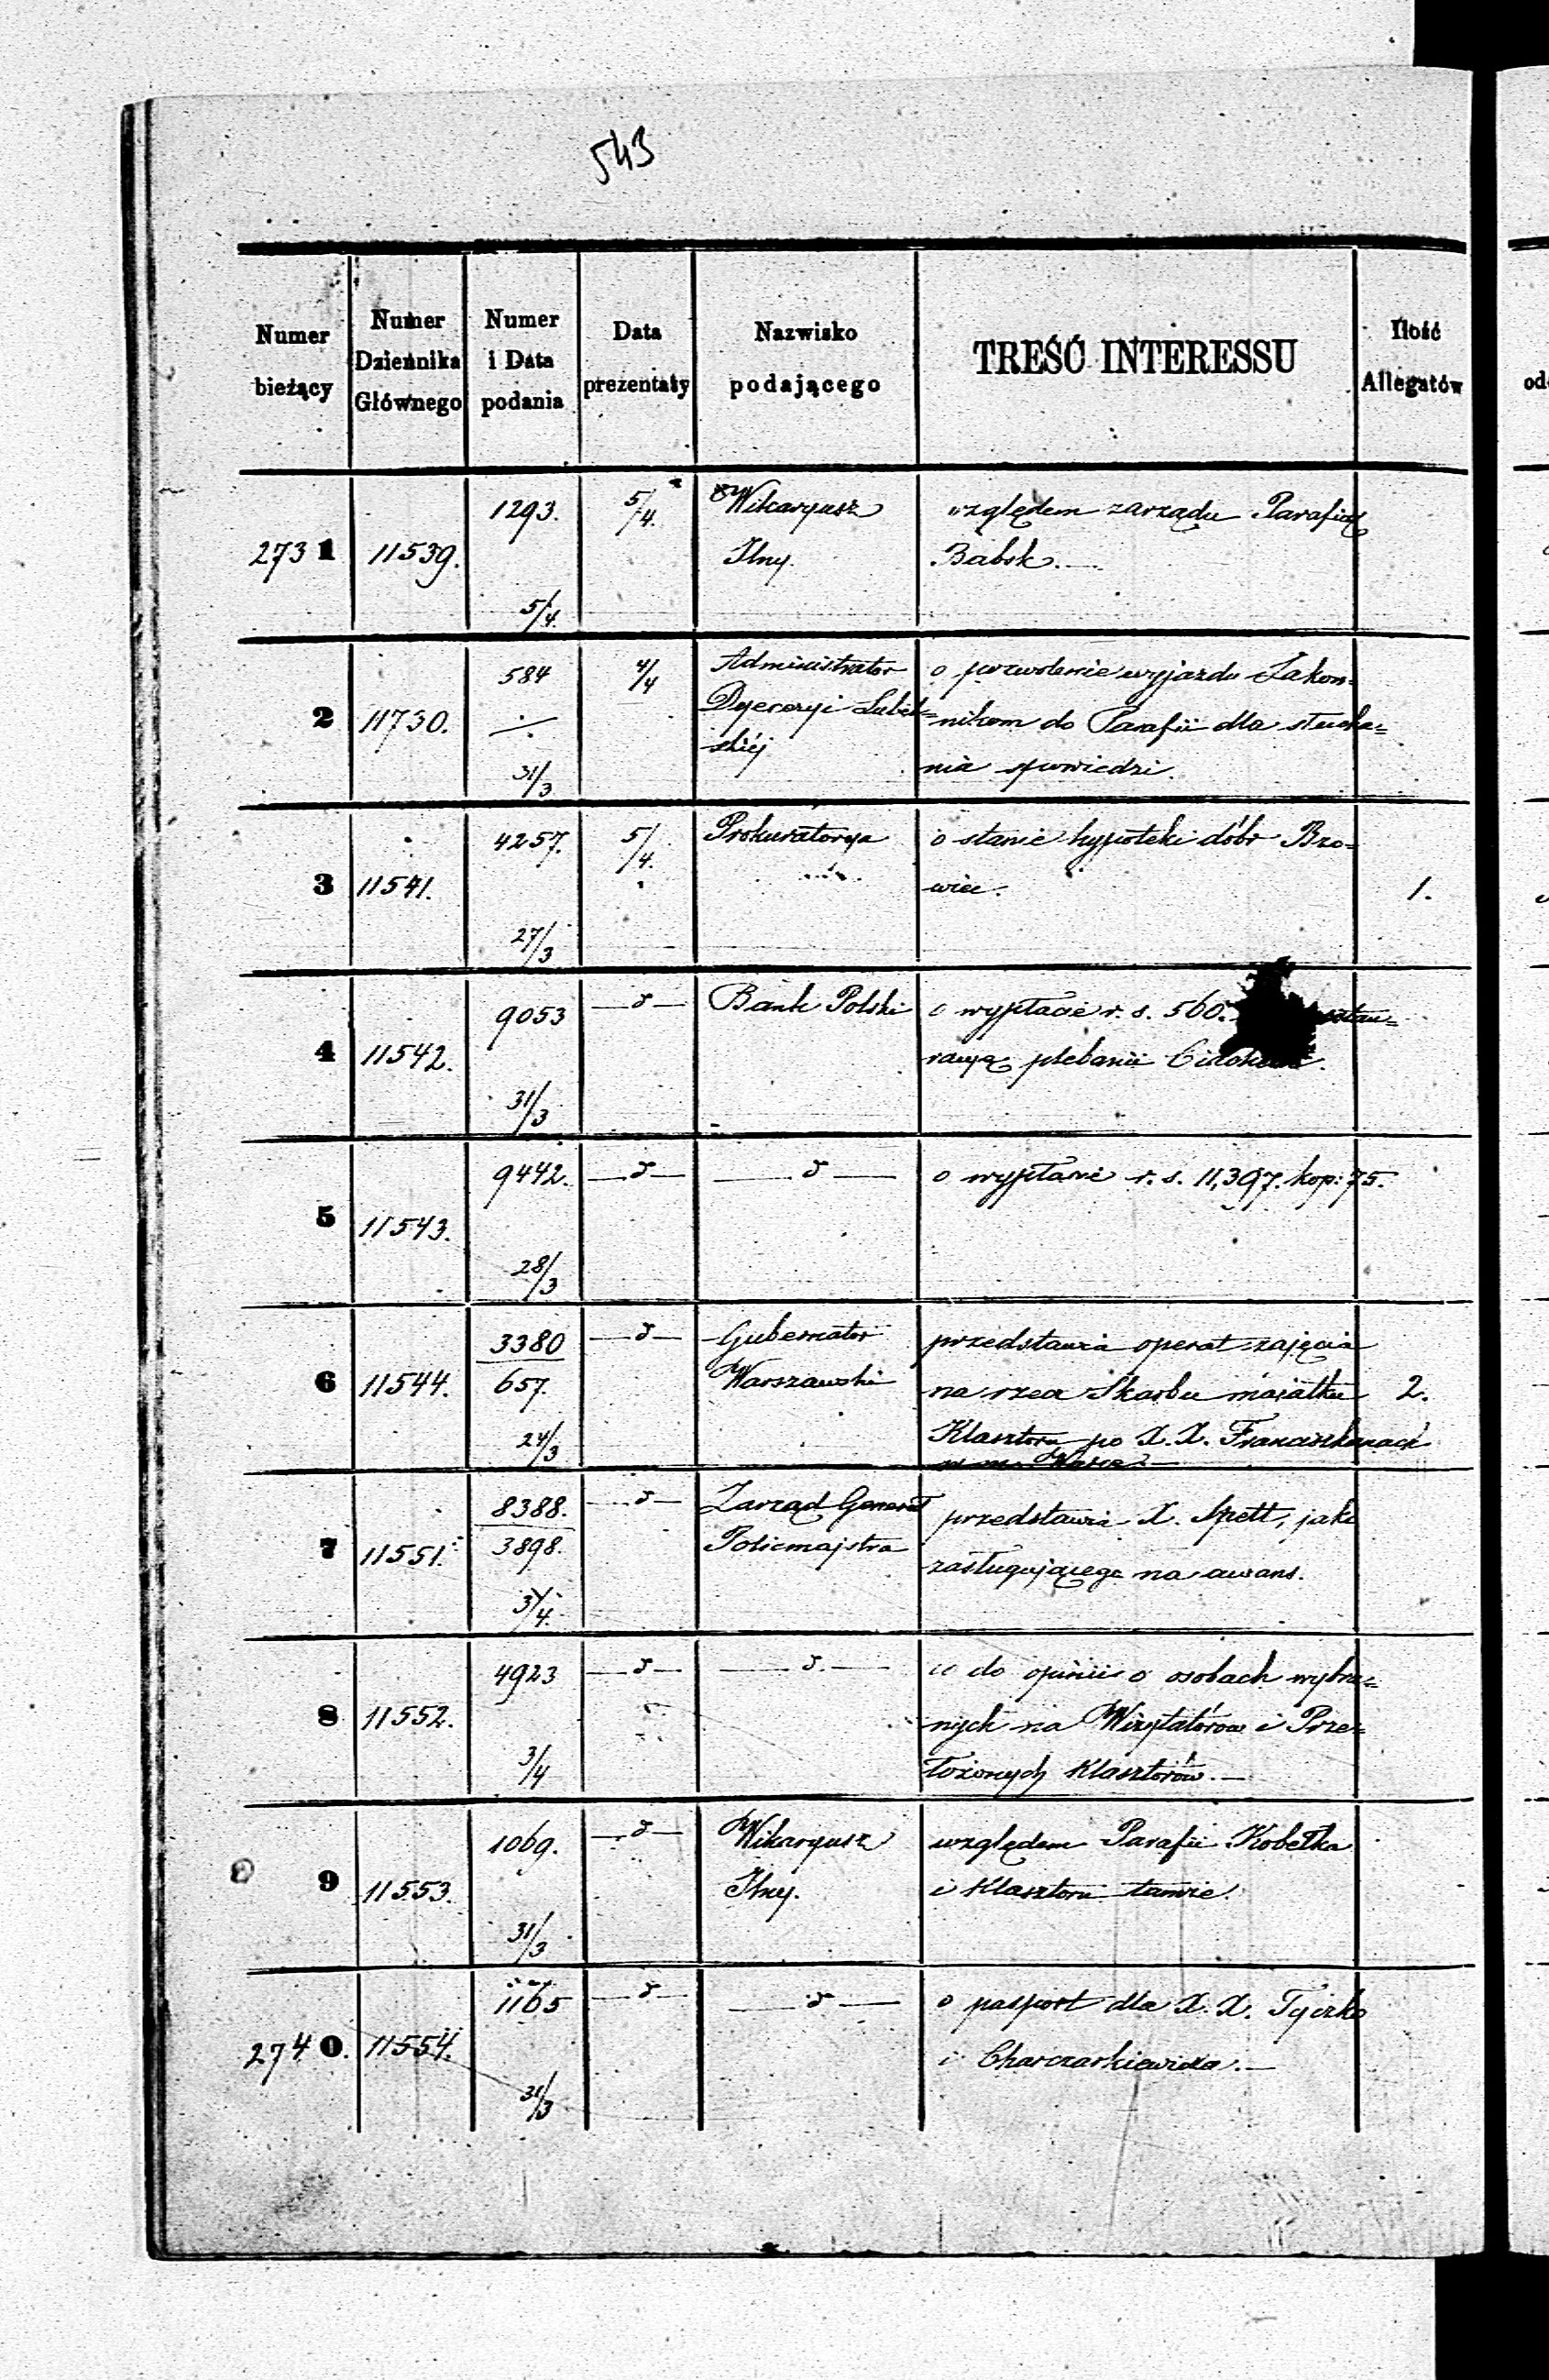 543
Numer bieżący
Numer Dziennika Głównego
Numer i Data podania
Data prezentaty
Nazwisko podającego
TREŚĆ INTERESSU
Ilość Allegatów
2731 11539. 1293. 5/4. 5/4. Wikaryusz Jlny. względem zarządu Parafią
Babsk.—
2 11730. 584 31/3 4/4 Administrator Dyecezyi Lubel=skiéj o pozwolenie wyjazdu Zakon=
nikom do Parafii dla słucha=
nia spowiedzi.
3 11541. 4257. 27/3 5/4. Prokuratorya o stanie hypoteki dóbr Bzo=
wiec. 1.
4 11542. 9053 31/3 —d— Bank Polski o wypłacie r. s. 560.
racyą plebanii
5 11543. 9442. 28/3 —d— —d— o wypłacie r. s. 11,397. kop: 75.
6 11544. 3380 657. 24/3 —d— Gubernator Warszawski przedstawia operat zajęcia
na rzecz Skarbu majątku 2.
Klasztoru po X. X. Franciszkanach
w m. Warce.—
7 11551. 8388. 3898. —d— Zarząd Generał Policmajstra przedstawia X. Spett, jako
zasługującego na awans.
8 11552. 4923 3/4 —d— —d.— co do opinii o osobach wybra=
nych na Wizytatórow i Prze=
łożonych Klasztorów.—
9 11553. 1069. 31/3 —d— Wikaryusz Jlny. względem Parafii Kobełka
i Klasztoru tamże.
2740. 11554. 1165 31/3 —d— —d— o pasport dla X. X. Tyczko
i Charczarkiewicza.—